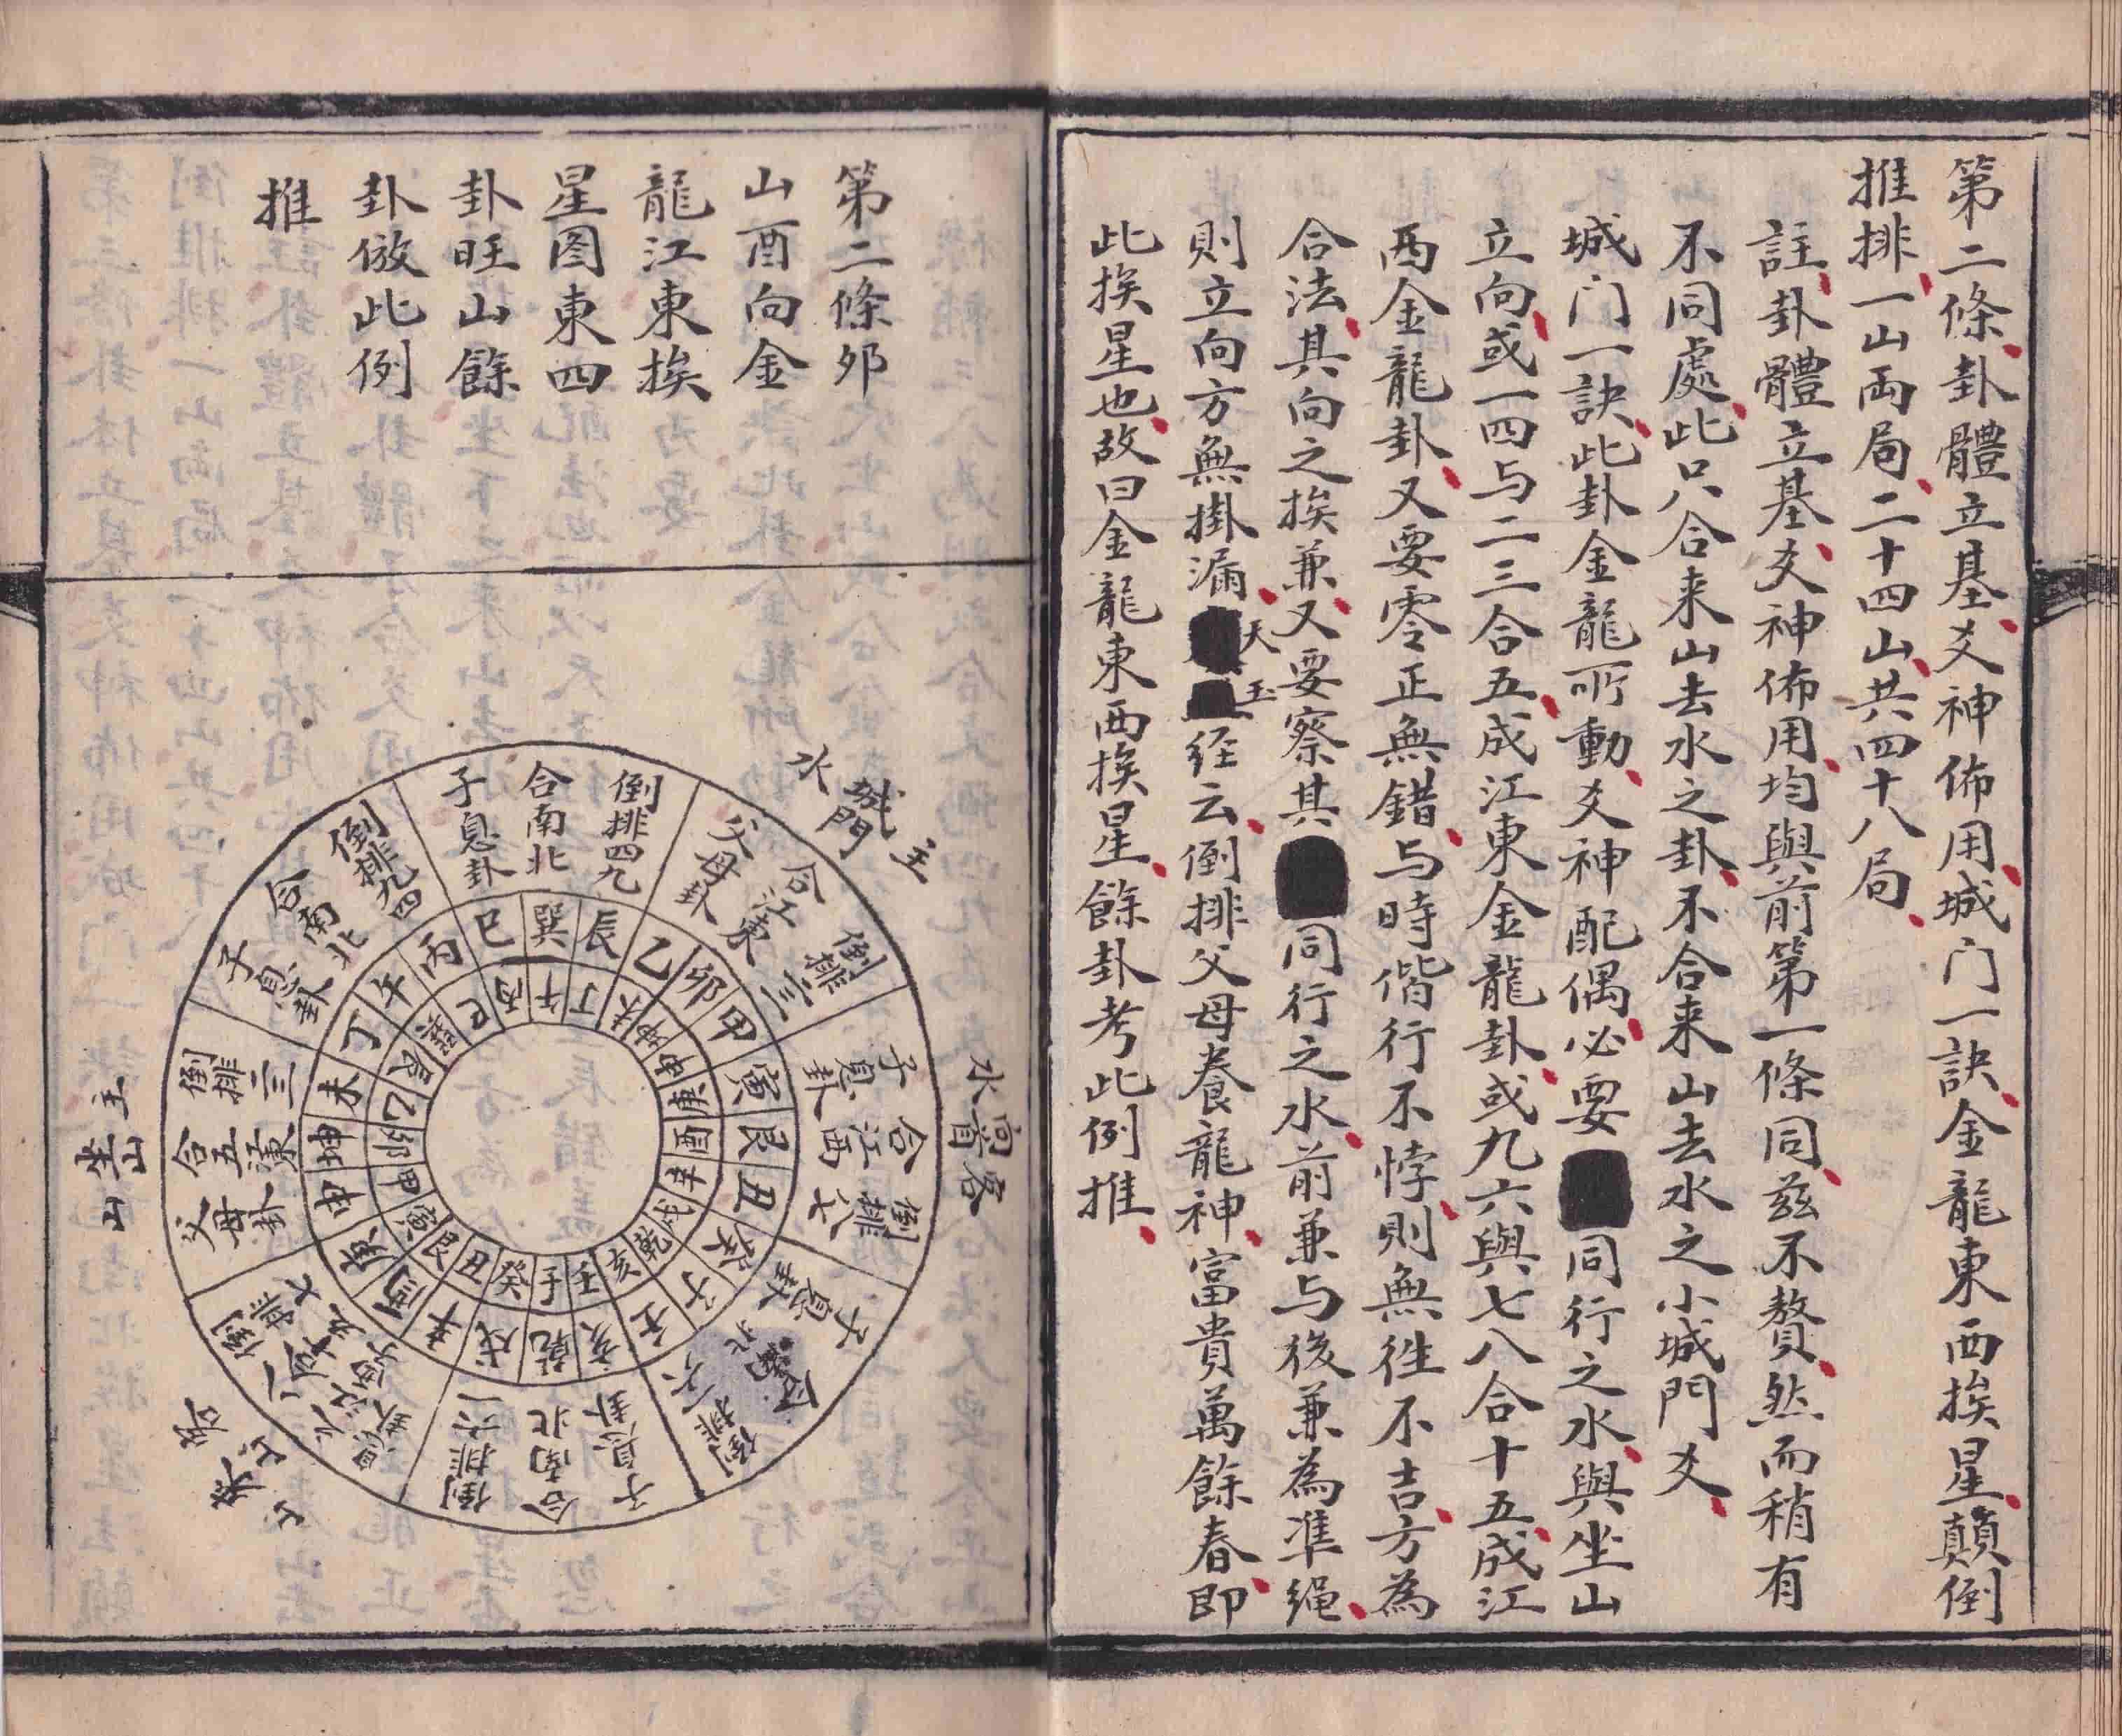 第二條卦體立基爻神佈用城门一訣金龍東西挨星顛倒
推排一山両局二十四山共四十八局
註卦體立基爻神佈用均與前第一條同兹不贅然而稍有
不同處此只合来山去水之卦不合来山去水之小城門爻
城门一訣此卦金龍所動爻神配偶必要同行之水與坐山
立向或一四与二三合五成江東金龍卦或九六與七八合十五成江
西金龍卦又要零正無錯与時偕行不悖則無徃不吉方為
合法其向之挨兼又要察其同行之水前兼与後兼為準绳
則立向方無掛漏天玉经云倒排父母養龍神富貴萬餘春即
此挨星也故曰金龍東西挨星餘卦考此例推
第二條夘
山酉向金
龍江東挨
星图東四
卦旺山餘
卦倣此例
推
水
城門
主
水
向首
客
主
坐山
山
客
去来
山
倒排四九
合南北
子息卦
倒排二三
合江東
父母卦
子息卦
合江西
倒排七八
子息卦
合南北
倒排一六
子息卦
合南北
倒排一六
倒排九四
合南北
子息卦
倒排二三
合五江東
父母卦
辰巽巳丙午丁未坤申庚酉辛戌乾亥壬子癸丑艮寅甲卯乙
丁午丙巳巽辰乙夘甲寅艮丑癸子壬亥乾戌辛酉庚申坤未